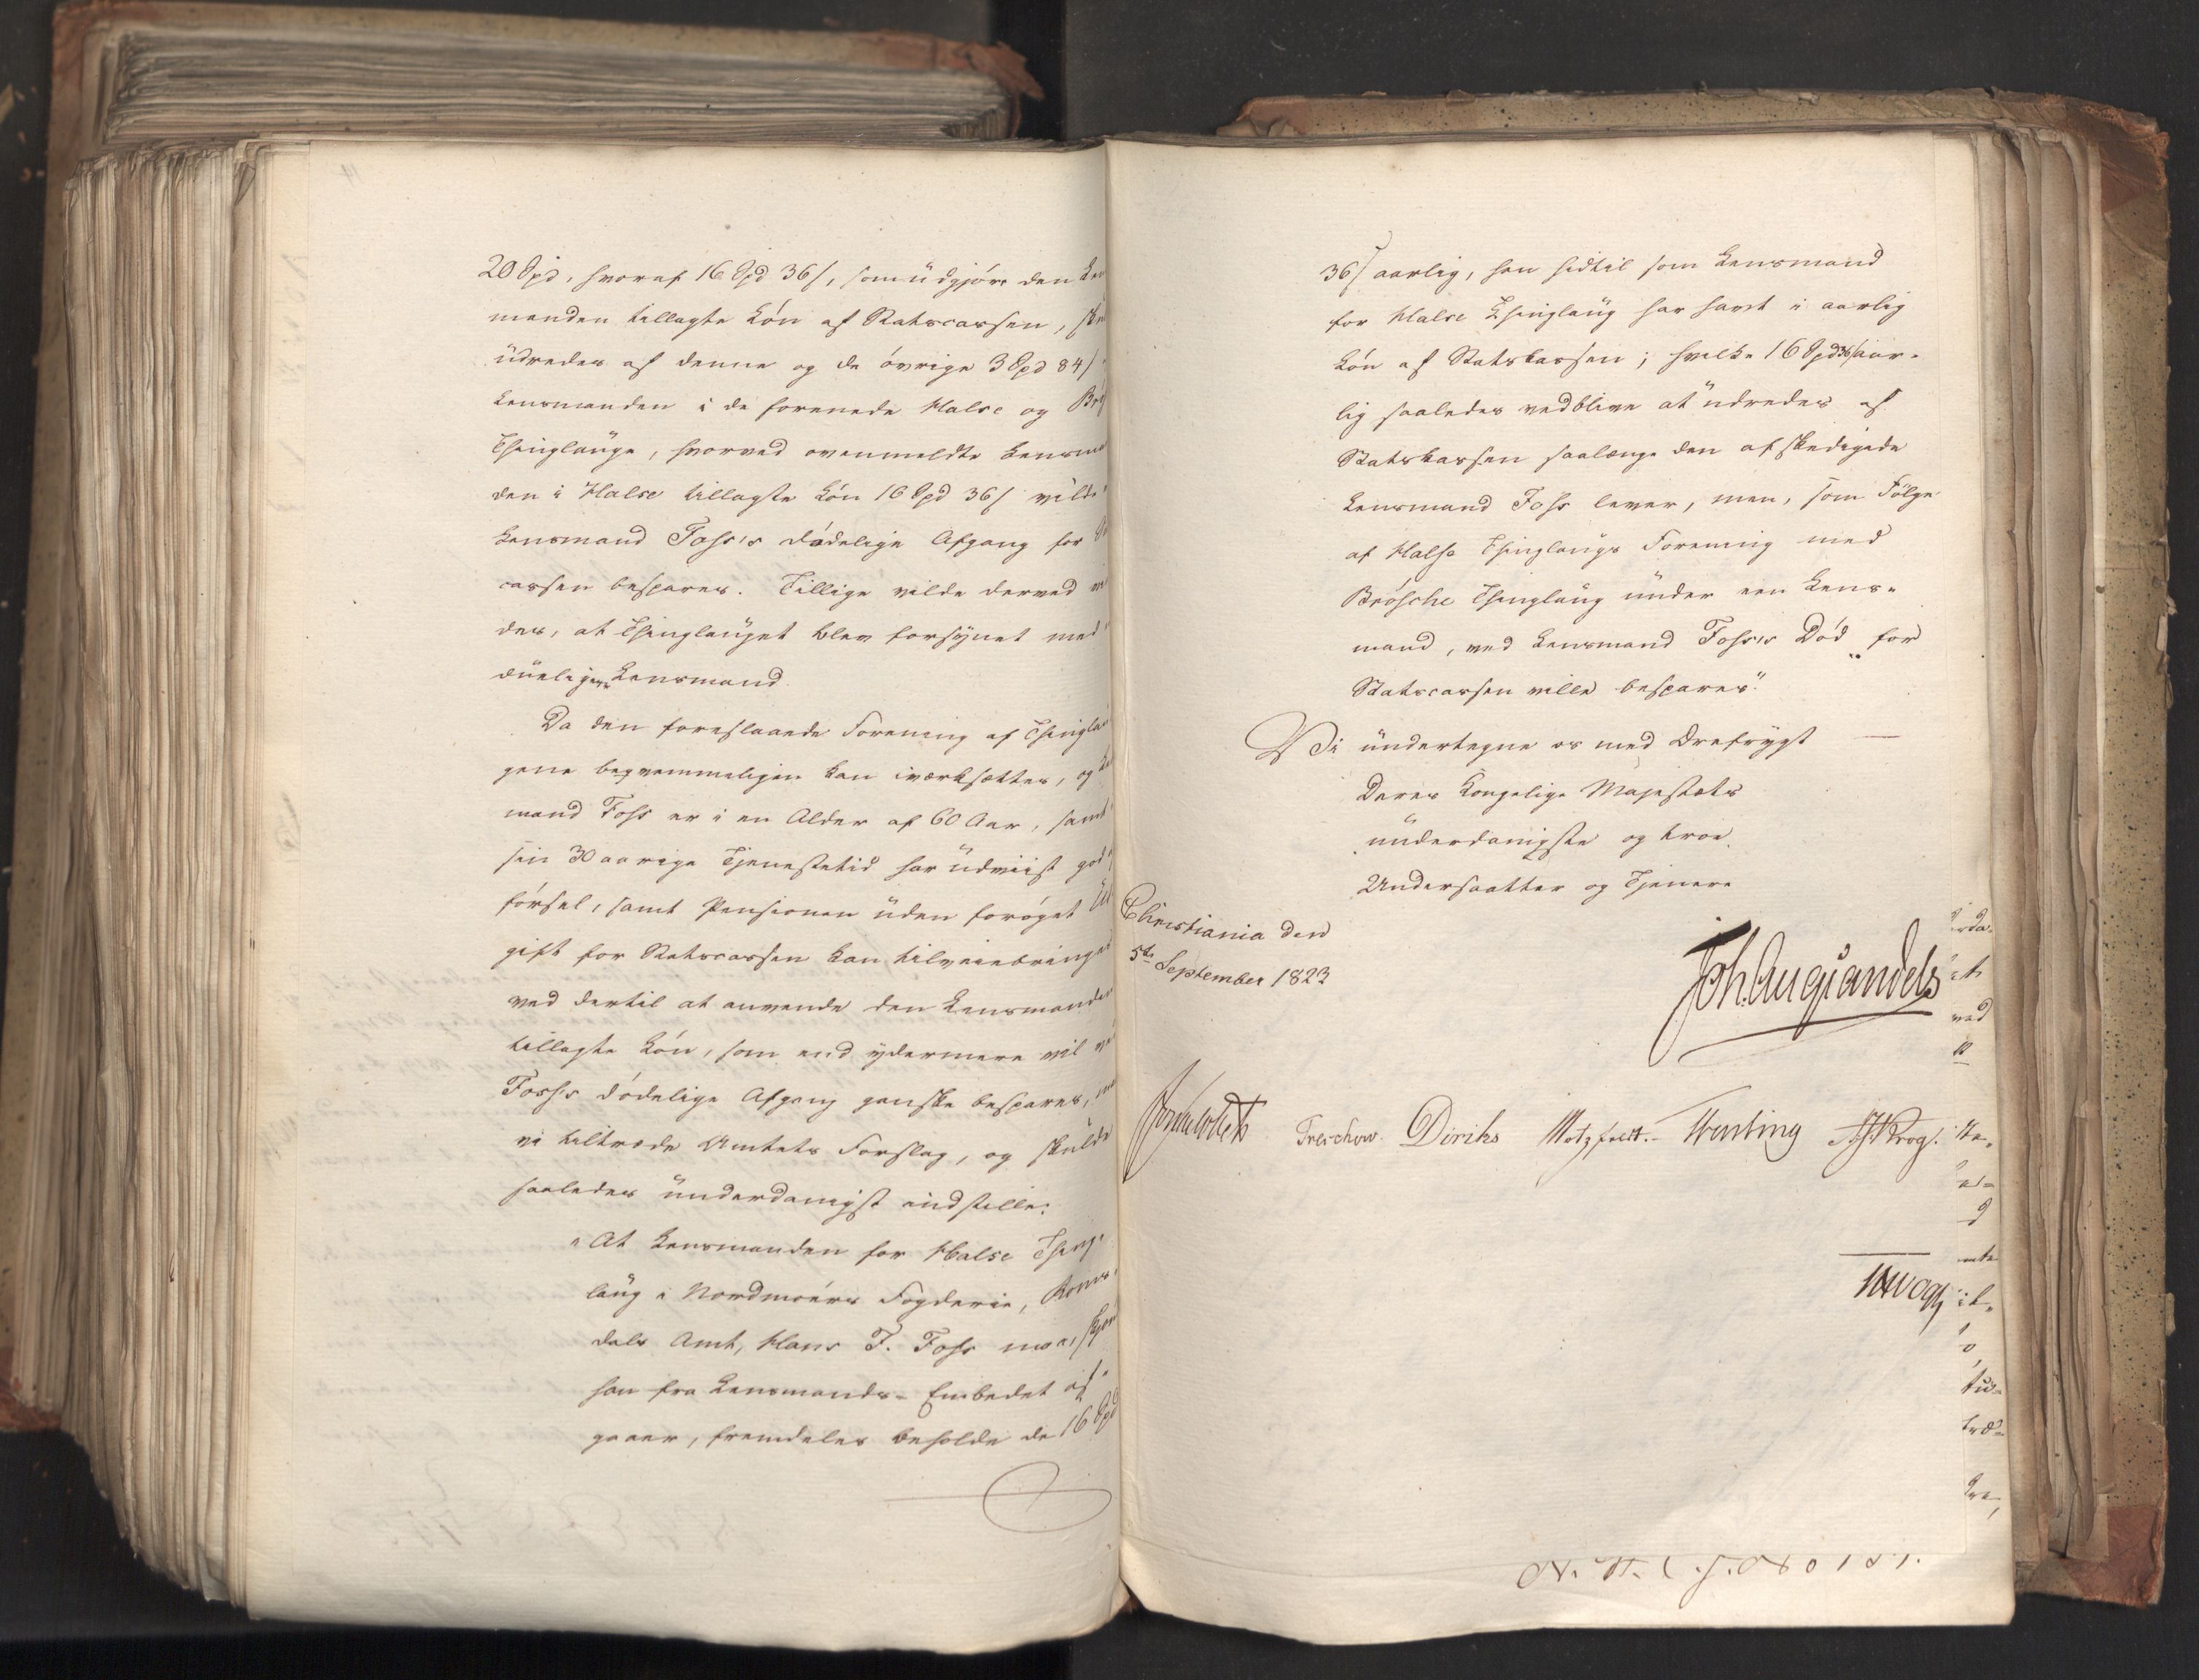 20 Spd, hvoraf 16 Spd 36 s, som üdgjöre den Len
manden tillagte Lön af Statscassen,
üdredes af denne og de övrige 3 Spd 84 s
Lensmanden i de forenede Halse og
Thinglauge, hvorved ovenmeldte Lensma
den i Halse tillagte Lön 16 Spd 36 s vilde
Lensmand Foss's dödelige Afgang for
cassen bespares. Tillige vilde derved
des, at Thinglauget blev forsynet med
düeligere Lensmand.
Da den foreslaaede Forening af Thinglau
gene beqvemmeligen kan iværksættes, og
mand Foss er i en Alder af 60 Aar, samt
sin 30 aarige Tjenestetid har üdviist god
förhel, samt Pensionen üden foröget
gift for Statscassen kan tilveiebringes
ved dertil at anvende den Lensmanden
tillagte Lön, som end ydermere vil
Foss's dödelige Afgang ganske bespares,
vi tiltræde Amtets Forslag, og skulde
saaledes ünderdanigst indstille:
"At Lensmanden for Halse Thing-
laüg i Nordmöers Fogderie, Roms-
dals Amt, Hans F. Foss maa,
han fra Lensmands-Embedet af-
gaaer, fremdeles beholde de 16 Spd
36 s aarlig, han hidtil som Lensmand
for Halse Thinglaüg har havt i aarlig
Lön af Statskassen; hvilke 16 Spd 36 s aar-
lig saaledes vedblive at üdredes af
Statskassen saalænge den afskedigede
Lensmand Foss lever, men, som Følge
af Halse Thinglaugs Forening med
Brösche Thinglaüg ünder een Lens-
mand, ved Lensmand Foss's Död for
Statscassen ville bespares".
Vi ündertegne os med Ærefrygt
Deres Kongelige Majestæts
ünderdanigste og troe
Undersaatter og Tjenere
Christiania den
5te September 1823
Joh. Aug. Sandels
Treschow. Diriks Motzfeldt. Krog.